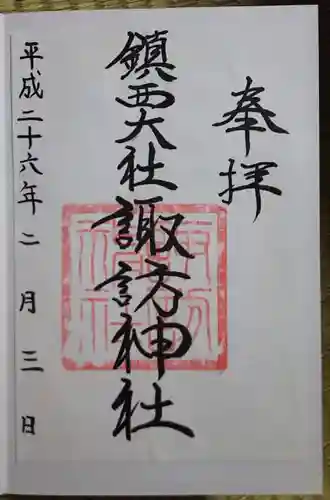 奉拝
鎮西大社諏訪神社
平成二十六年二月三日